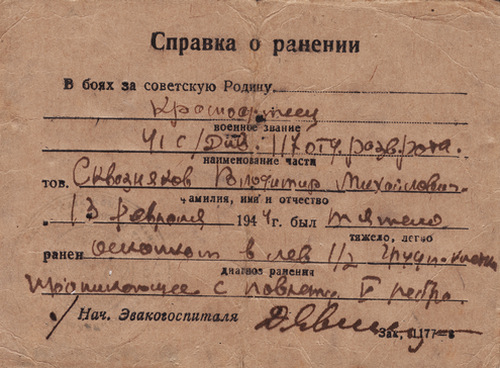 Справка о ранении
В боях за советскую Родину
Красноармеец
военное звание
41 с/Див. 117 отд. разв. рота.
наименование части
тов. Сквозняков Володимир Михайлович
фамилия, имя и отчество
13 февраля 1944 г. был тяжело
тяжело, легко
ранен осколком в лев 1/2 груди. клетки
диагноз ранения
проникающее с поврежд. V ребра
Нач. Эвакогоспиталя
Зак. 61177—8